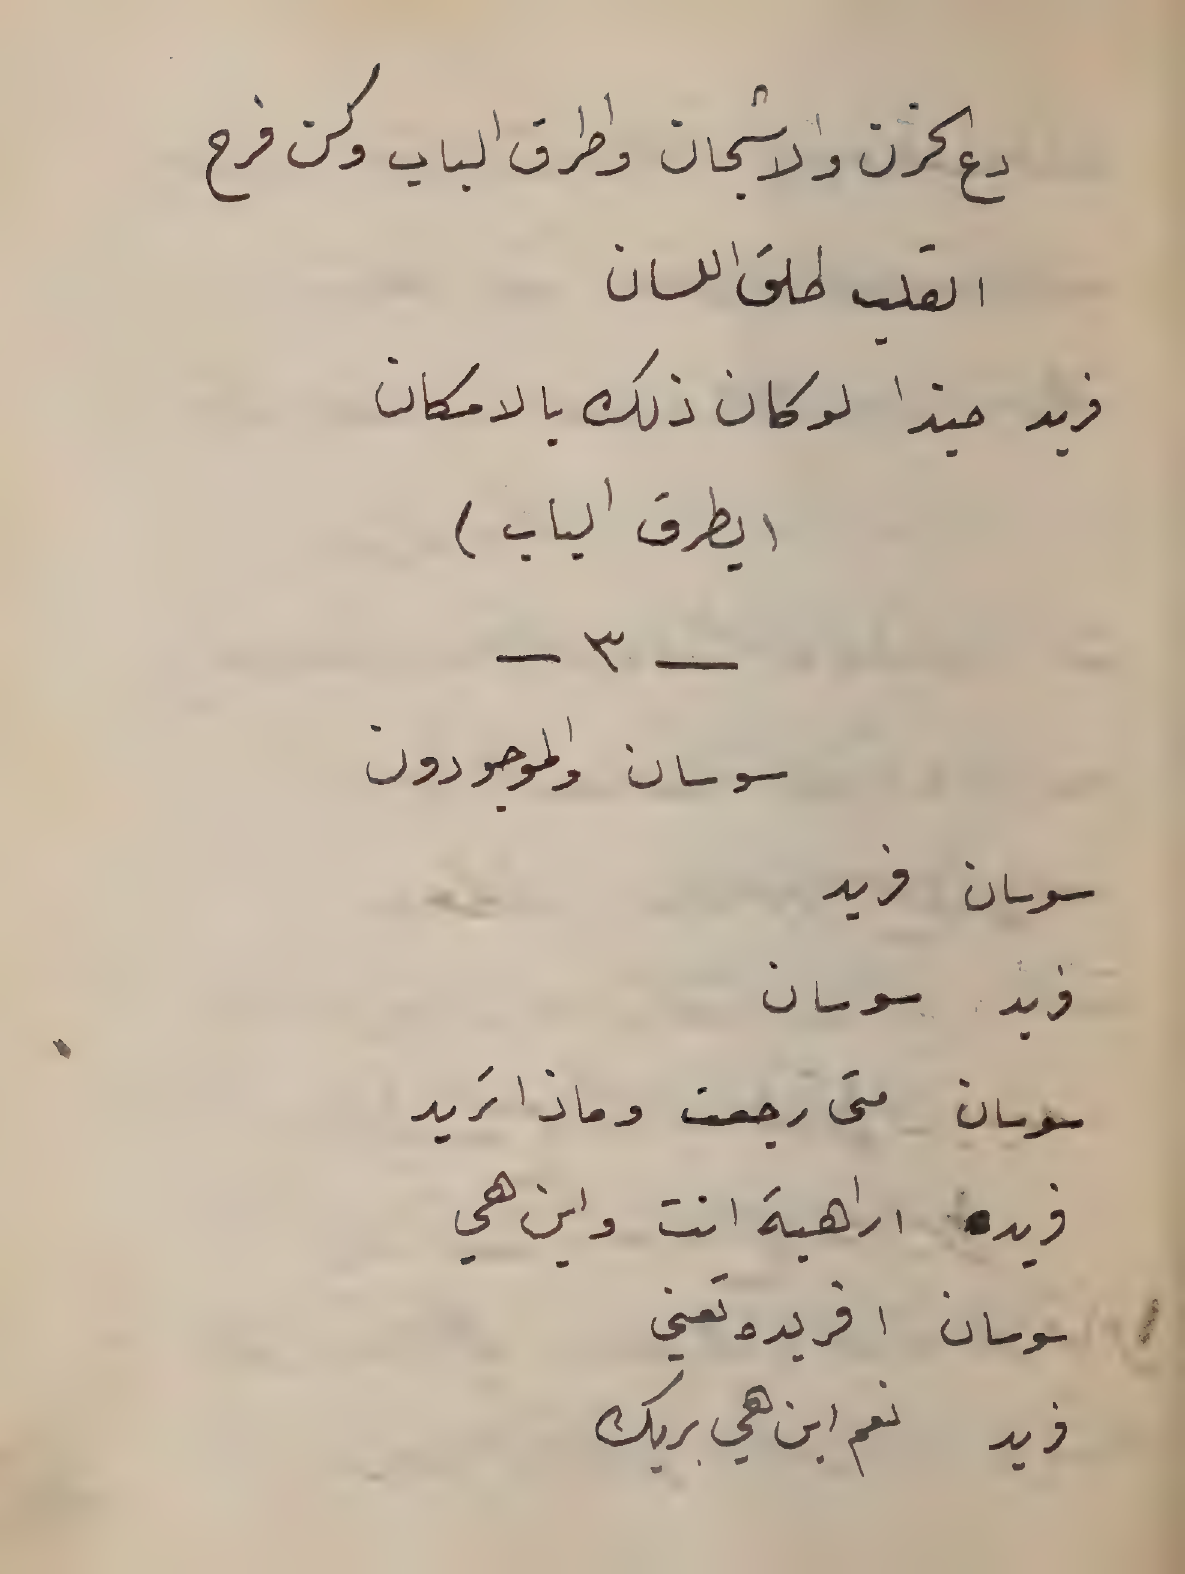 دع الحزن والاشجان واطرق الباب وكن فرح
القلب طلق اللسان
فريد حبذا لو كان ذلك بالامكان
(يطرق الباب)
— ٣ —
سوسان والموجودون
سوسان فريد
فريد سوسان
سوسان متى رجعت وماذا تريد
فريده اراهبة انت واين هي
سوسان افريده تعني
فريد نعم اين هي بربك